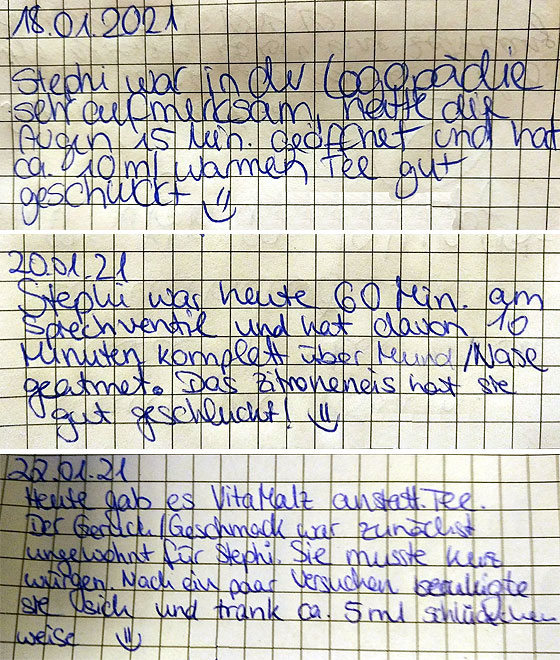 18.01.2021
Stephi war in der Logopädie
sehr aufmerksam, hatte die
Augen 15 Min. geöffnet und hat
ca. 10 ml warmen Tee gut
geschluckt
20.01.21
Stephi war heute 60 Min. am
Sprechventil und hat davon 10
Minuten komplett über Mund/Nase
geatmet. Das Zitroneneis hat sie
gut geschluckt!
22.01.21
Heute gab es VitaMalz anstatt Tee.
Der Geruch/Geschmack war zunächst
ungewohnt für Stephi. Sie musste kurz
würgen. Nach ein paar Versuchen beruhigte
sie sich und trank ca. 5 ml schlückchen
weise